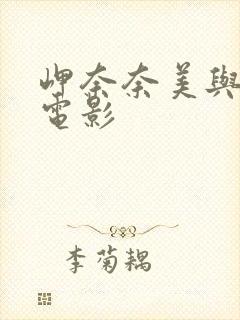 岬奈奈美與
電影
李菊耦